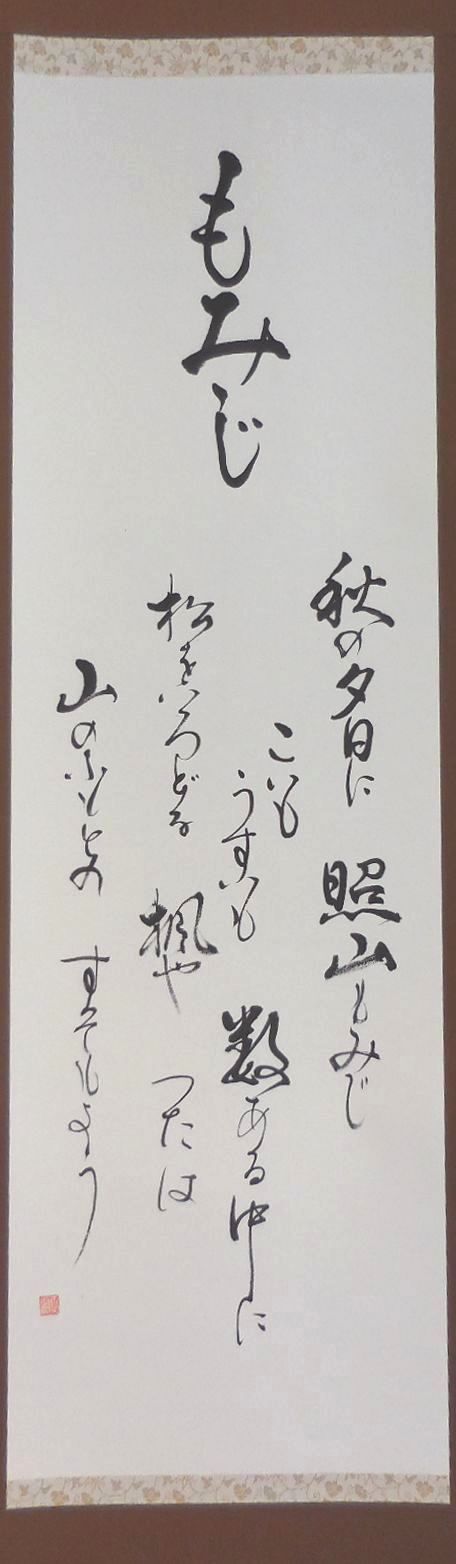 もみじ
秋の夕日に 照山もみじ
こいも うすいも 数ある中に
松をいろどる 楓や つたは
山のふもとの すそもよう